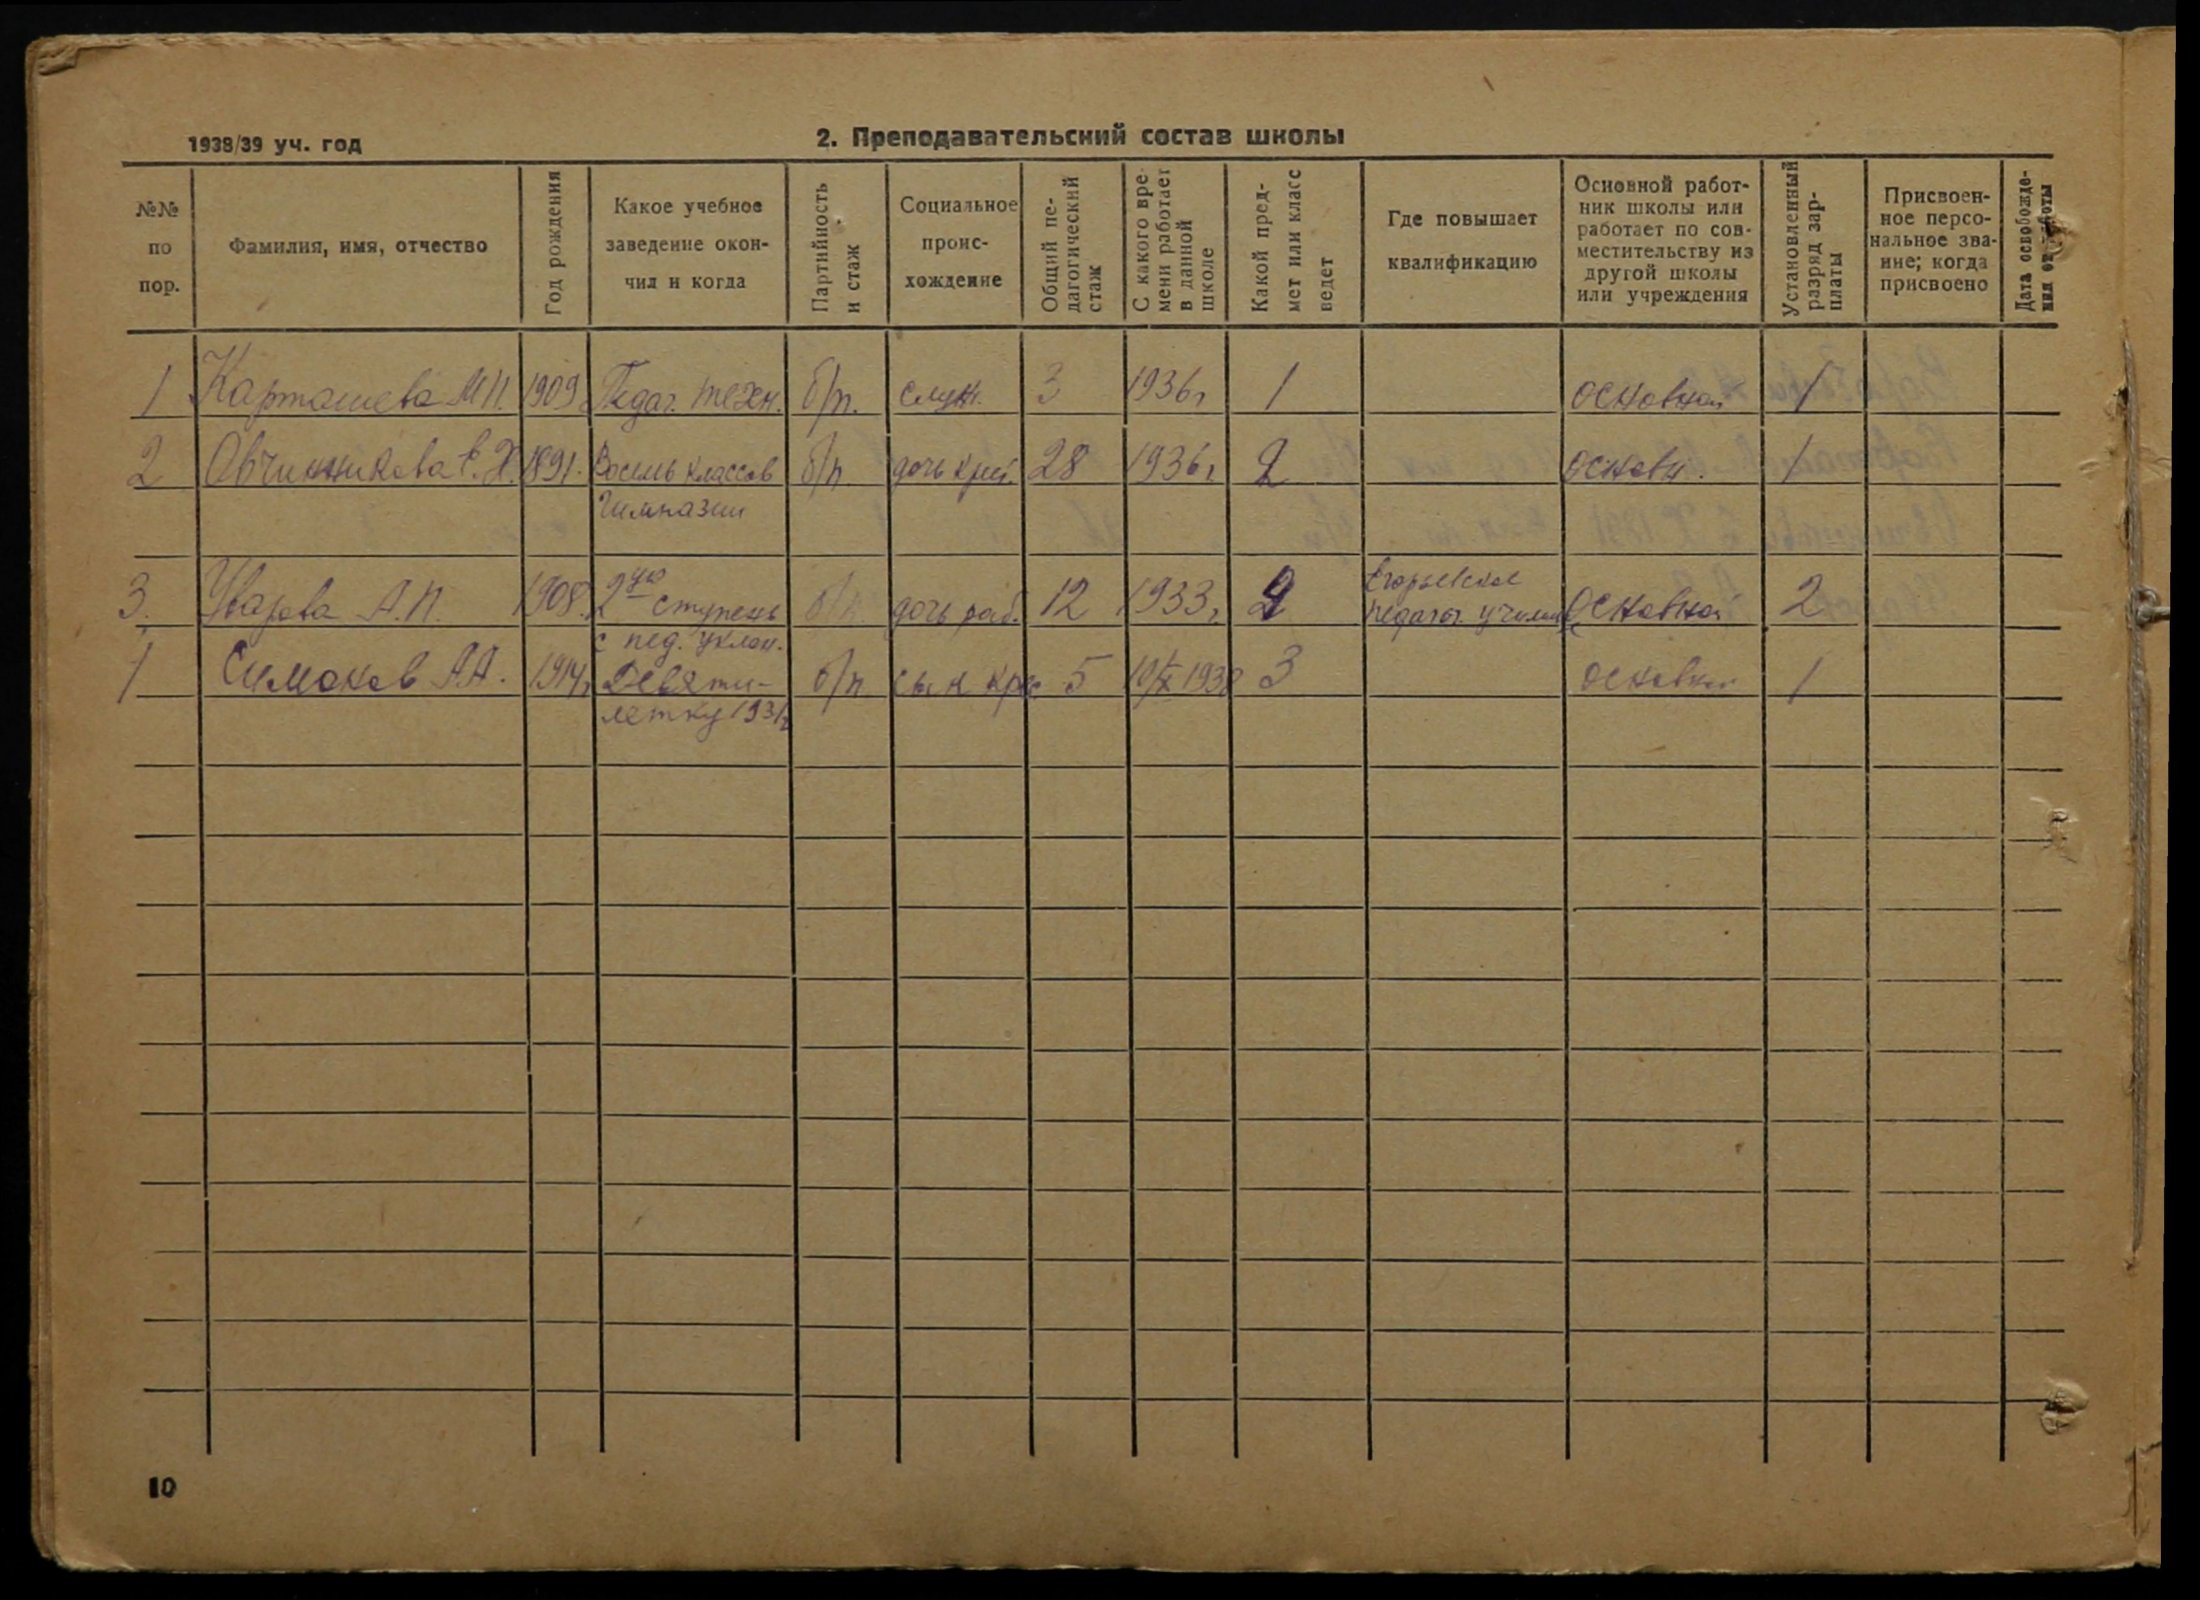 1938/39 уч. год
2. Преподавательский состав школы
№№ по пор.
Фамилия, имя, отчество
Год рождения
Какое учебное заведение окон-
чил и когда
Партийность и стаж
Социальное
проис-
хождение
Общий пе-
дагогический
стаж
С какого вре-
мени работает
в данной
школе
Какой пред-
мет или класс
ведет
Где повышает
квалификацию
Основной работ-
ник школы или
работает по сов-
местительству из
другой школы
или учреждения
Установленный
разряд зар-
платы
Присвоен-
ное персо-
нальное зва-
ние; когда
присвоено
Дата освобожде-
ния от работы
1 Карташева М.П. 1909 Педаг. техн. б/п. служ. 3 1936г 1 основной 1
2 Овчинникова Е. Х. 1891. Восемь классов б/п. дочь крест. 28 1936г 2 основн. 1
Гимназии
3. Уварова А.П. 1908. 2ую ступень б/п дочь раб. 12 1933г 2 Егорьевское педагог. училище Основной 2
с пед. уклон.
1 Симаков А.А. 1914г Девяти- б/п. сын крес 5 10/IX 1938 3 основной 1
летку 1931г
10